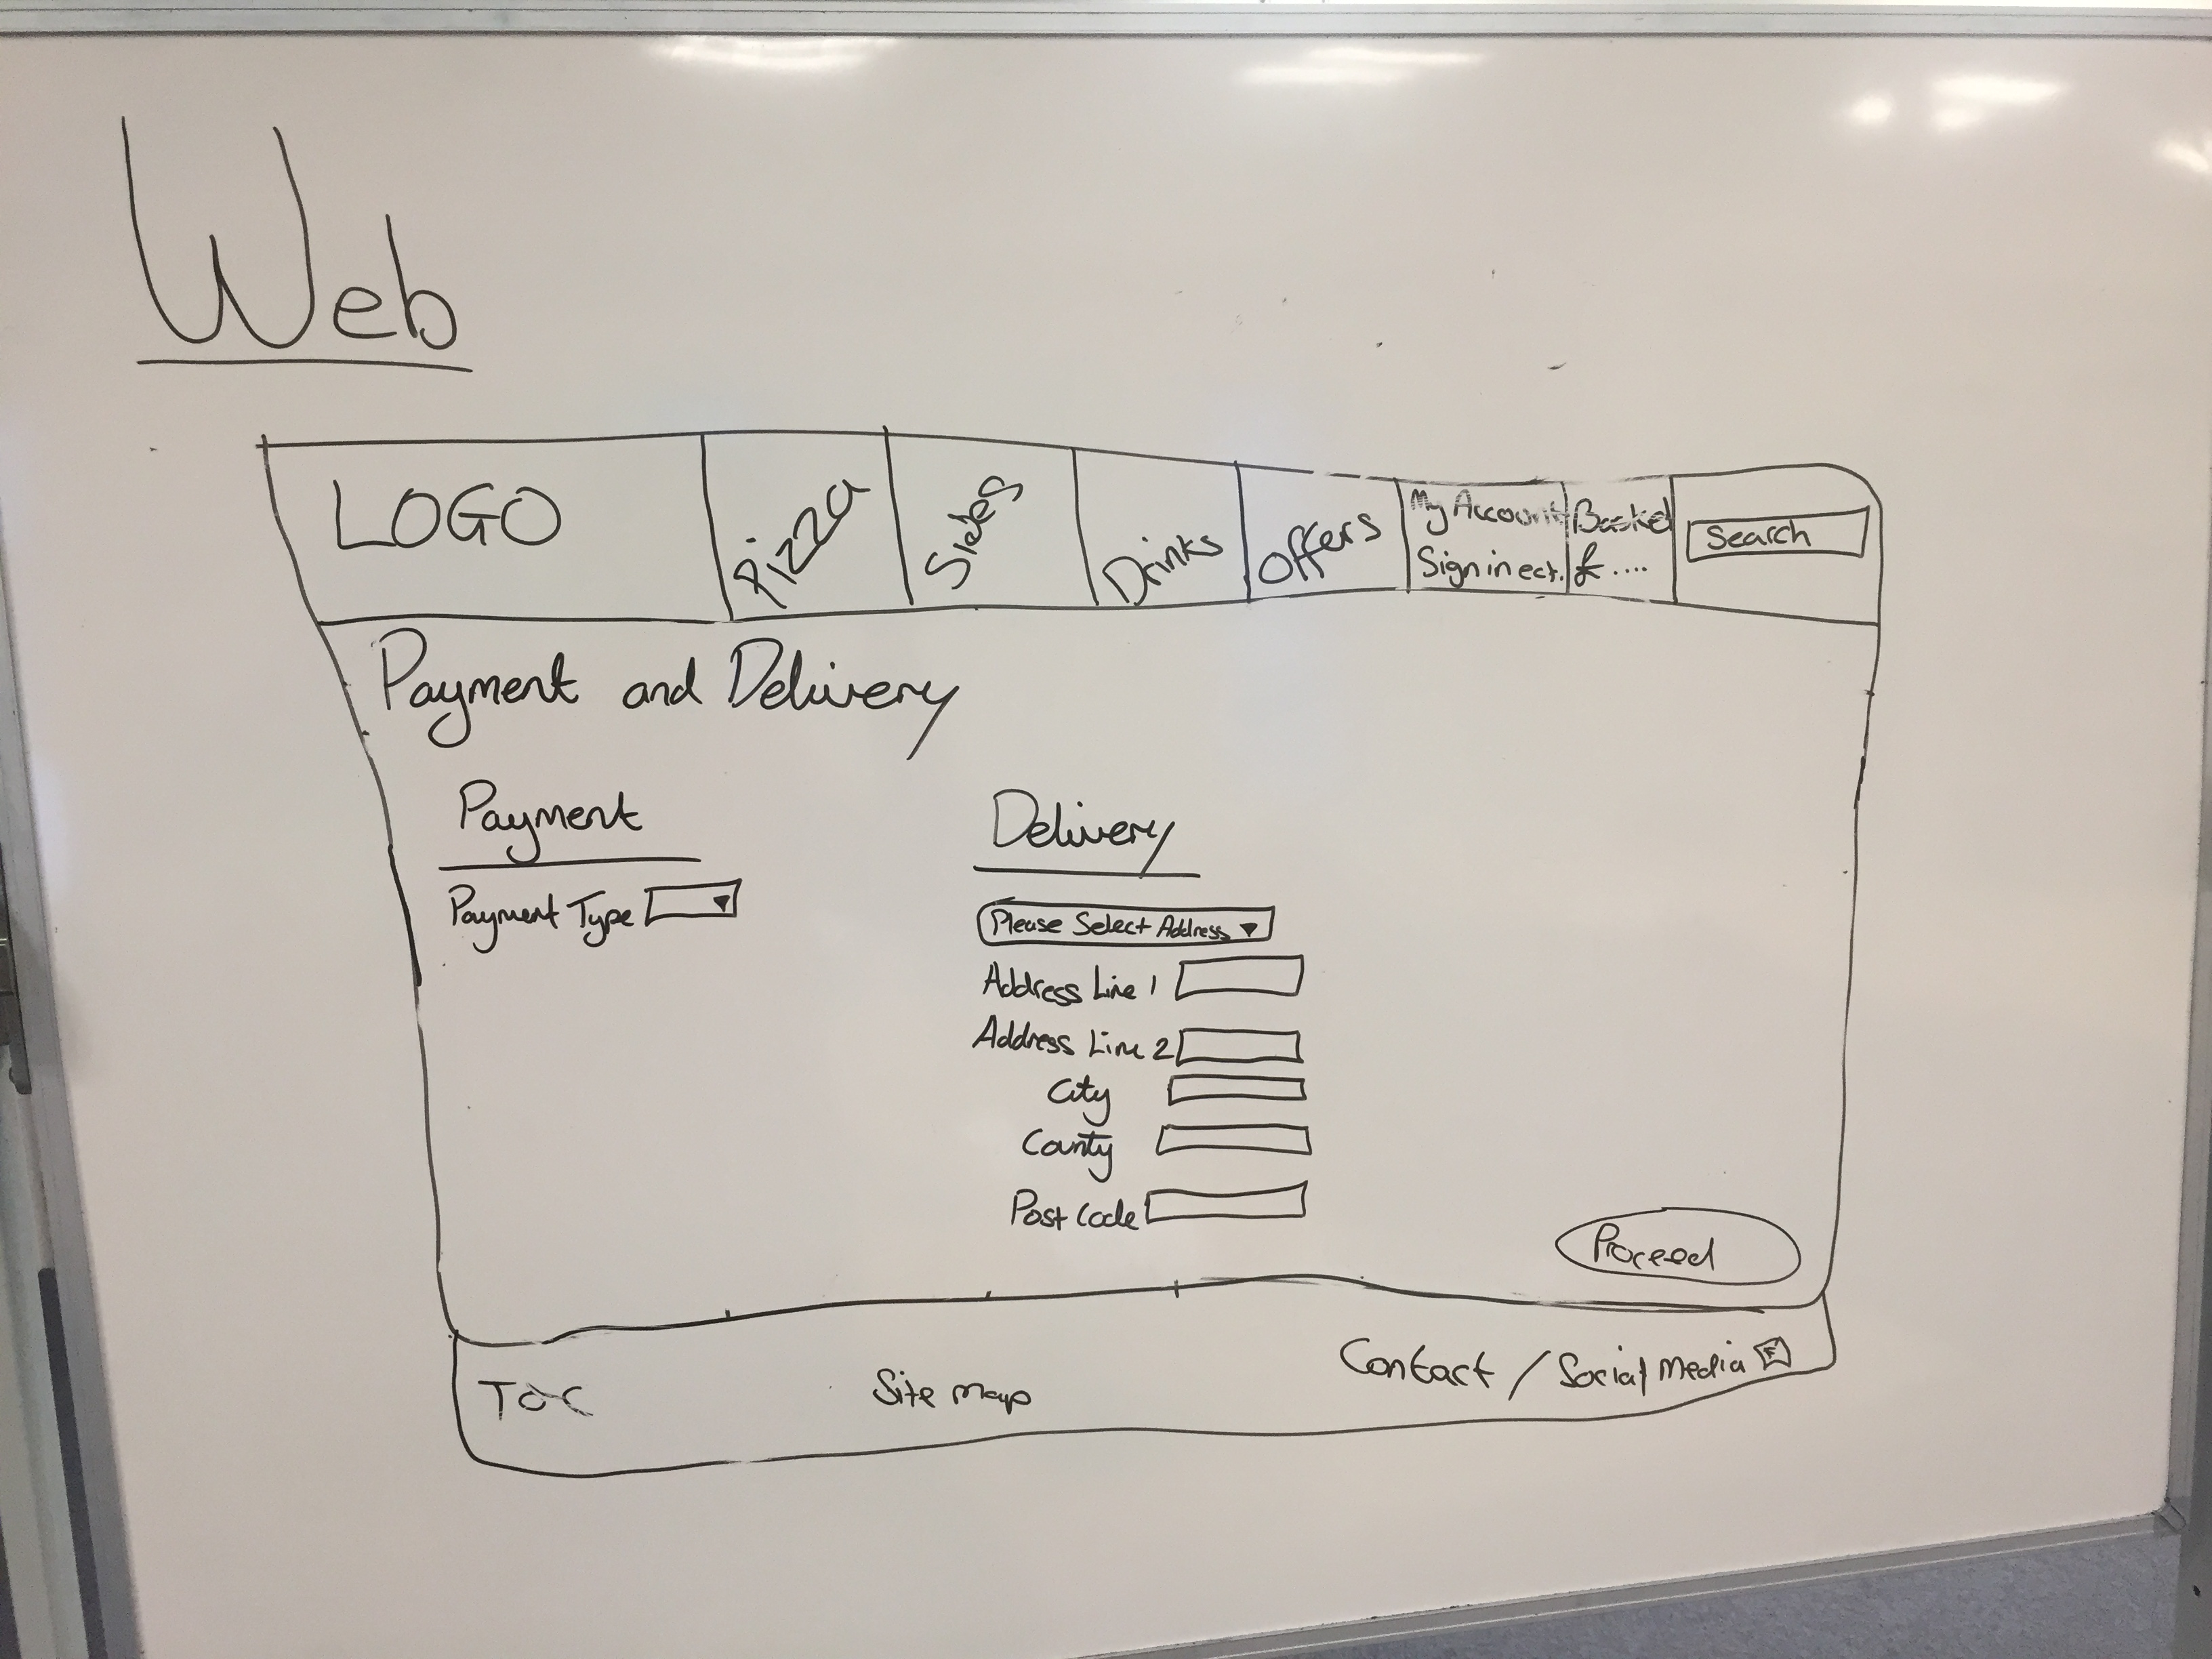 Web
LOGO
Pizza
Sides
Drinks
Offers
My Account
Sign in ect.
Basket
£....
Search
Payment and Delivery
Payment
Payment Type
Delivery
Please Select Address
Address Line 1
Address Line 2
City
County
Post Code
Proceed
Site Map
Contact / Social Media F